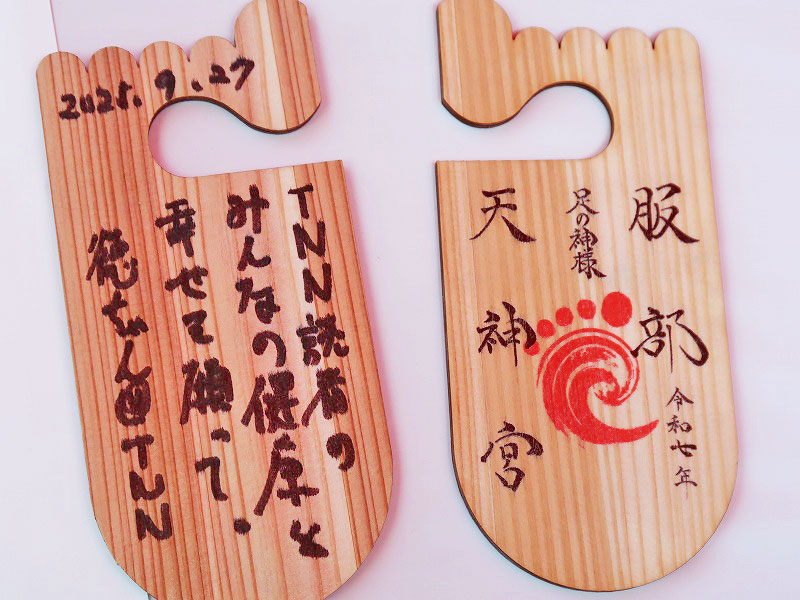 2025.9.27
TNN読者の
みんなの健康と
幸せを願って。
徳ちん@TNN
服部
天神宮
足の神様
令和七年